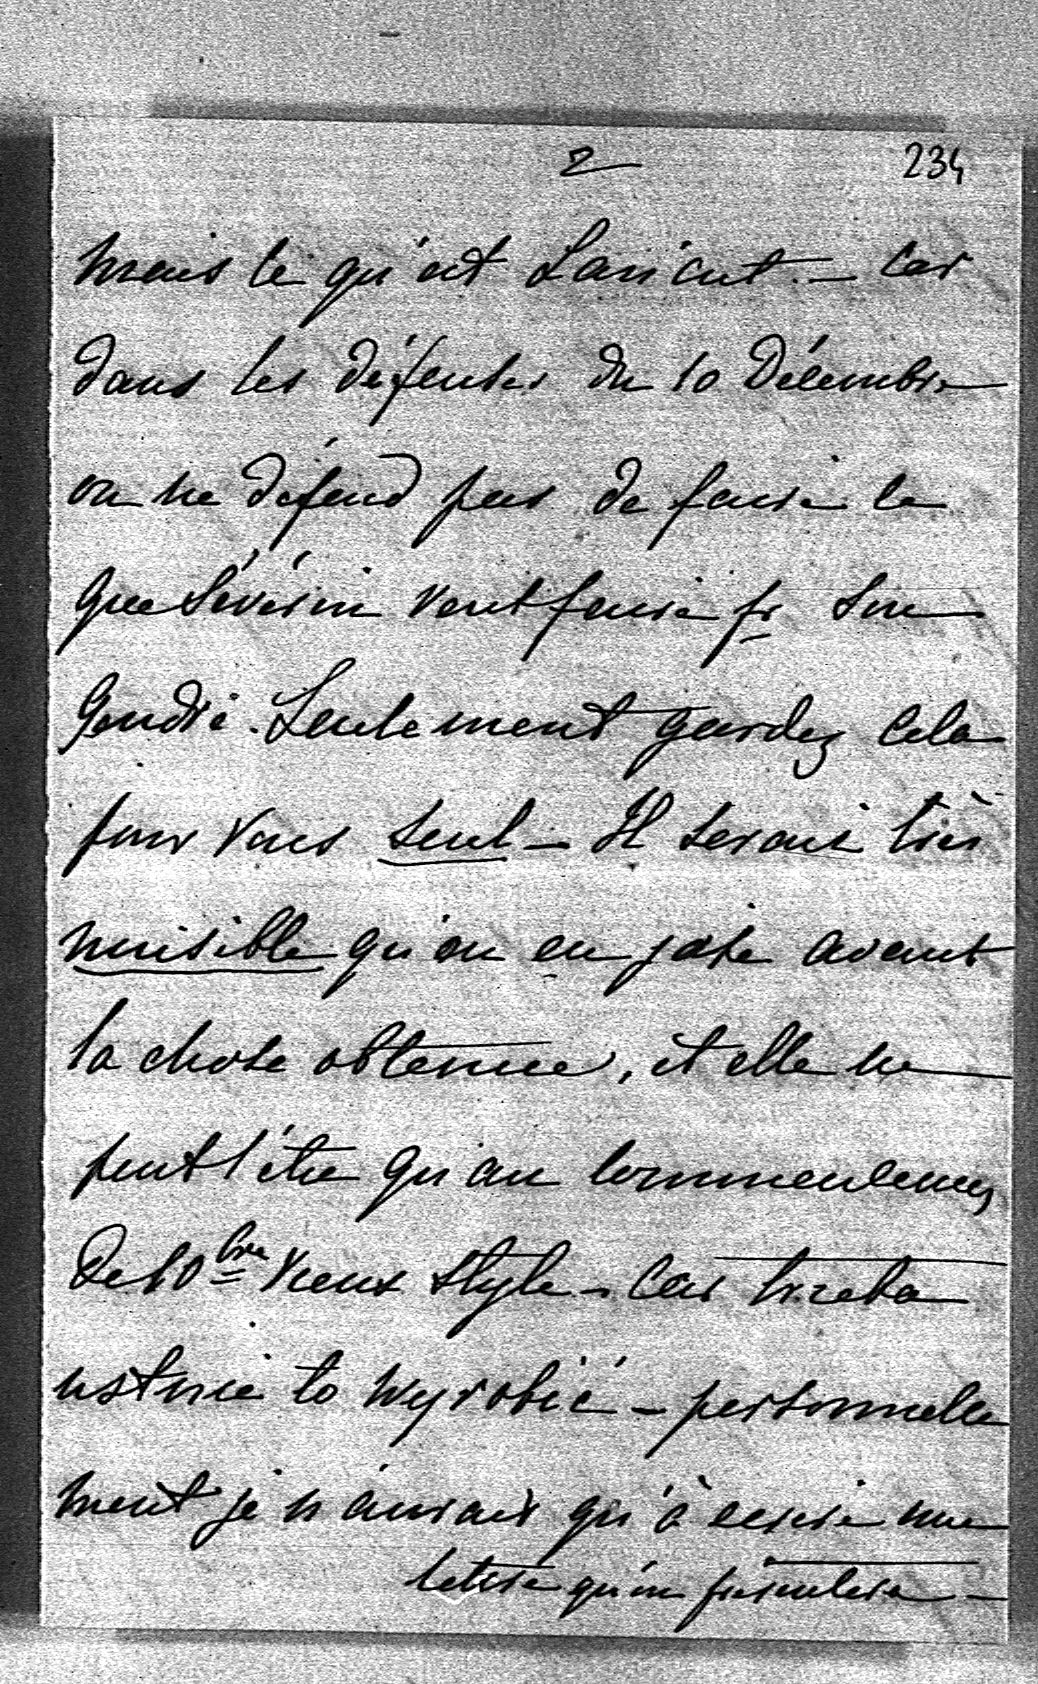 2 234
mais ce qui est Łańcut. — Car
dans les défenses du 10 Décembre
on ne défend pas de faire ce
que Sévérin veut faire pr son
Gendre. Seulement gardez cela
pour vous seul — Il serait très
nuisible qu'on en jase avant
la chose obtenue, et elle ne
peut l'être qu'au commencement
De 10bre vieux style — Car trzeba
ustnie to wyrobić — personnelle
ment je n'aurais qu'à écrire une
lettre qu'on présentera —